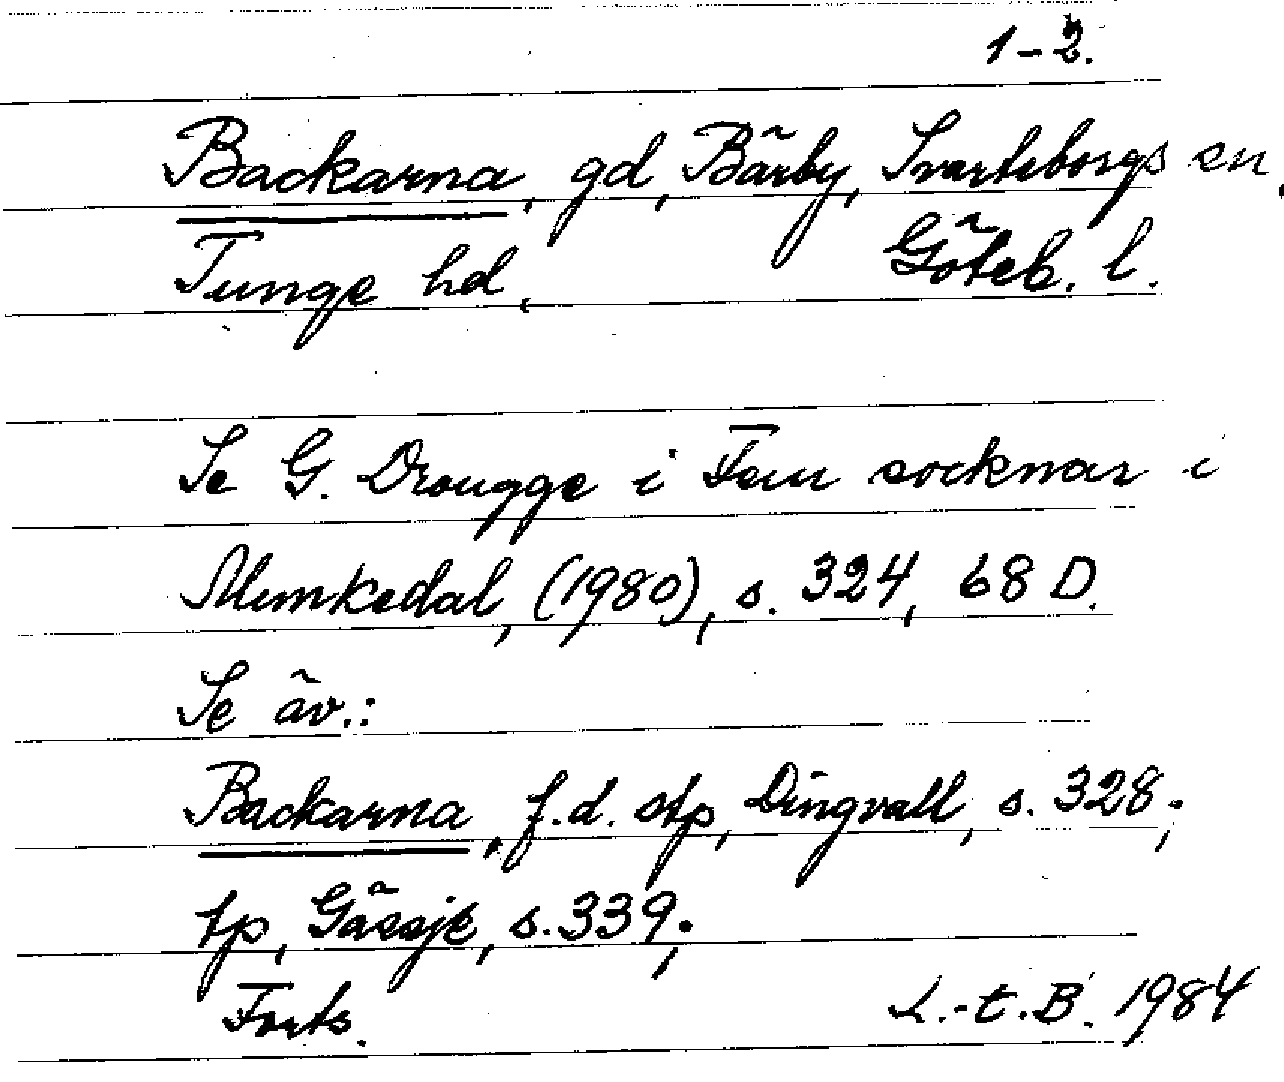 1-2.
Backarna, gd, Bärby, Svarteborgs sn,
Tunge hd, Göteb. l.
Se G. Drougge i Fem socknar i
Munkedal, (1980), s. 324, 68 D.
Se äv.:
Backarna, f.d. stp, Dingvall, s. 328;
tp, Gässje, s. 339;
Forts. L.-t.B. 1984